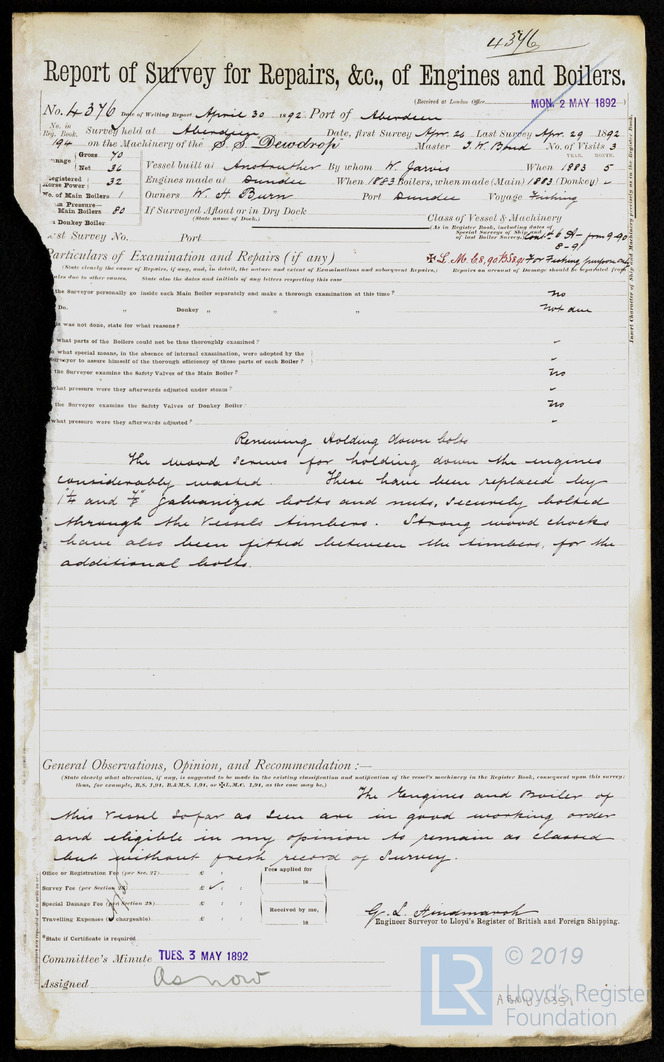 4376
Report of Survey for Repairs, &c., of Engines and Boilers.
(Received at London Office MON. 2 MAY 1892)
No. 4376 Date of Writing Report April 30 1892 Port of Aberdeen
No. in Reg. Book. 194 Survey held at Aberdeen Date, first Survey Apr. 26 Last Survey Apr. 29 1892
on the Machinery of the S.S. "Dewdrop" Master J. W. Bond No. of Visits 3
Gross 70
Net 36
Vessel built at Anstruther By whom W. Jarvis When 1883 5
YEAR. MONTH.
Registered Horse Power 32 Engines made at Dundee When 1883 Boilers, when made (Main) 1883 (Donkey) -
No. of Main Boilers 1 Owners W. H. Burn Port Dundee Voyage Fishing
Pressure— Main Boilers 80 If Surveyed Afloat or in Dry Dock
(State name of Dock.)
Donkey Boiler
Class of Vessel & Machinery
(As in Register Book, including dates of Special Surveys of Ship and of last Boiler Survey.)
Survey No. Port
8-91
Particulars of Examination and Repairs (if any) ✠ L.M.C. 8,90 BS 8,91 For Fishing purposes only
(State clearly the cause of Repairs, if any, and, in detail, the nature and extent of Examinations and subsequent Repairs.) Repairs on account of Damage should be separated from
due to other causes. State also the dates and initials of any letters respecting this case
the Surveyor personally go inside each Main Boiler separately and make a thorough examination at this time? No
Do. " Donkey " " " Not due
was not done, state for what reasons?
what parts of the Boilers could not be thus thoroughly examined? "
what special means, in the absence of internal examination, were adopted by the
Surveyor to assure himself of the thorough efficiency of those parts of each Boiler? "
the Surveyor examine the Safety Valves of the Main Boiler? No
what pressure were they afterwards adjusted under steam? "
the Surveyor examine the Safety Valves of Donkey Boiler No
what pressure were they afterwards adjusted? "
Renewing Holding down bolts
The wood screws for holding down the engines
considerably wasted. These have been replaced by
1¼" and ⅞" Galvanized bolts and nuts, securely bolted
through the Vessels timbers. Strong wood chocks
have also been fitted between the timbers, for the
additional bolts.
Insert Character of Ship and Machinery precisely as in the Register Book.
General Observations, Opinion, and Recommendation :—
(State clearly what alteration, if any, is suggested to be made in the existing classification and notification of the vessel's machinery in the Register Book, consequent upon this survey:
thus, for example, B.S. 1,91, B.&M.S. 1,91, or ✠L.M.C. 1,91, as the case may be.)
The Engines and Boiler of
this Vessel so far as seen are in good working order
and eligible in my opinion to remain as classed
but without fresh record of Survey.
Office or Registration Fee (per Sec. 27) £ : :
Survey Fee (per Section 28) £ : :
Special Damage Fee (per Section 28) £ : :
Travelling Expenses (if chargeable) £ : :
Fees applied for
18
Received by me,
18
G. L. Hindmarsh
Engineer Surveyor to Lloyd's Register of British and Foreign Shipping.
*State if Certificate is required
Committee's Minute TUES. 3 MAY 1892
Assigned As now
LR
© 2019
Lloyd's Register
Foundation